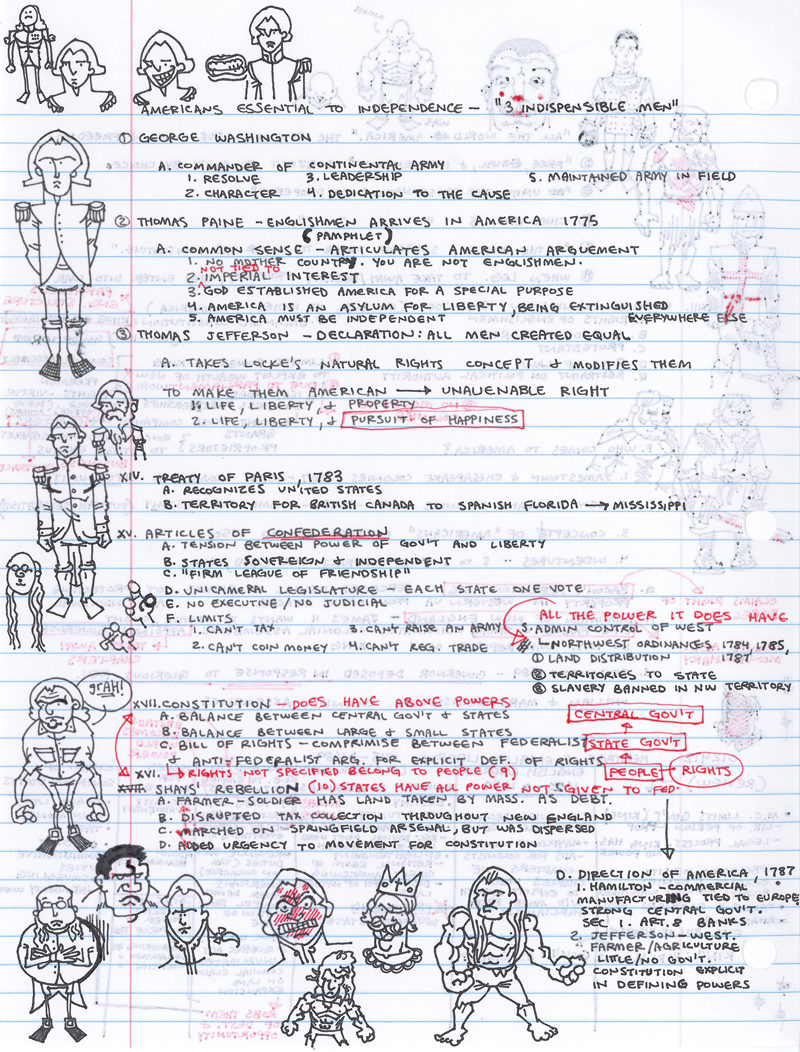 AMERICANS ESSENTIAL TO INDEPENDENCE - "3 INDISPENSIBLE MEN"
① GEORGE WASHINGTON
A. COMMANDER OF CONTINENTAL ARMY
1. RESOLVE 3. LEADERSHIP 5. MAINTAINED ARMY IN FIELD
2. CHARACTER 4. DEDICATION TO THE CAUSE
② THOMAS PAINE - ENGLISHMEN ARRIVES IN AMERICA 1775
(PAMPHLET)
A. COMMON SENSE - ARTICULATES AMERICAN ARGUEMENT
1. NO MOTHER COUNTRY. YOU ARE NOT ENGLISHMEN.
NOT TIED TO
2. IMPERIAL INTEREST
3. GOD ESTABLISHED AMERICA FOR A SPECIAL PURPOSE
4. AMERICA IS AN ASYLUM FOR LIBERTY, BEING EXTINGUISHED
EVERYWHERE ELSE
5. AMERICA MUST BE INDEPENDENT
③ THOMAS JEFFERSON - DECLARATION: ALL MEN CREATED EQUAL
A. TAKES LOCKE'S NATURAL RIGHTS CONCEPT & MODIFIES THEM
TO MAKE THEM AMERICAN → UNALIENABLE RIGHT
1. LIFE, LIBERTY, & PROPERTY
2. LIFE, LIBERTY, & PURSUIT OF HAPPINESS
XIV. TREATY OF PARIS, 1783
A. RECOGNIZES UNITED STATES
B. TERRITORY FOR BRITISH CANADA TO SPANISH FLORIDA → MISSISSIPPI
XV. ARTICLES OF CONFEDERATION
A. TENSION BETWEEN POWER OF GOV'T AND LIBERTY
B. STATES SOVEREIGN & INDEPENDENT
C. "FIRM LEAGUE OF FRIENDSHIP"
D. UNICAMERAL LEGISLATURE - EACH STATE ONE VOTE
E. NO EXECUTIVE/NO JUDICIAL
F. LIMITS
1. CAN'T TAX 3. CAN'T RAISE AN ARMY
2. CAN'T COIN MONEY 4. CAN'T REG. TRADE
ALL THE POWER IT DOES HAVE
5. ADMIN CONTROL OF WEST
NORTHWEST ORDINANCES 1784, 1785,
1787
① LAND DISTRIBUTION
② TERRITORIES TO STATE
③ SLAVERY BANNED IN NW TERRITORY
GRAH!
XVII. CONSTITUTION - DOES HAVE ABOVE POWERS
A. BALANCE BETWEEN CENTRAL GOV'T & STATES
B. BALANCE BETWEEN LARGE & SMALL STATES
C. BILL OF RIGHTS - COMPRIMISE BETWEEN FEDERALIST
& ANTI-FEDERALIST ARG. FOR EXPLICIT DEF. OF RIGHTS
CENTRAL GOV'T
STATE GOV'T
PEOPLE - RIGHTS
↳ RIGHTS NOT SPECIFIED BELONG TO PEOPLE (9)
(10) STATES HAVE ALL POWER NOT GIVEN TO FED.
XVI. SHAYS' REBELLION
A. FARMER-SOLDIER HAS LAND TAKEN BY MASS. AS DEBT.
B. DISRUPTED TAX COLLECTION THROUGHOUT NEW ENGLAND
C. MARCHED ON SPRINGFIELD ARSENAL, BUT WAS DISPERSED
D. ADDED URGENCY TO MOVEMENT FOR CONSTITUTION
D. DIRECTION OF AMERICA, 1787
1. HAMILTON - COMMERCIAL
MANUFACTURING TIED TO EUROPE
STRONG CENTRAL GOV'T.
SEC 1. ART. 8 BANKS
2. JEFFERSON - WEST.
FARMER/AGRICULTURE
LITTLE/NO GOV'T.
CONSTITUTION EXPLICIT
IN DEFINING POWERS